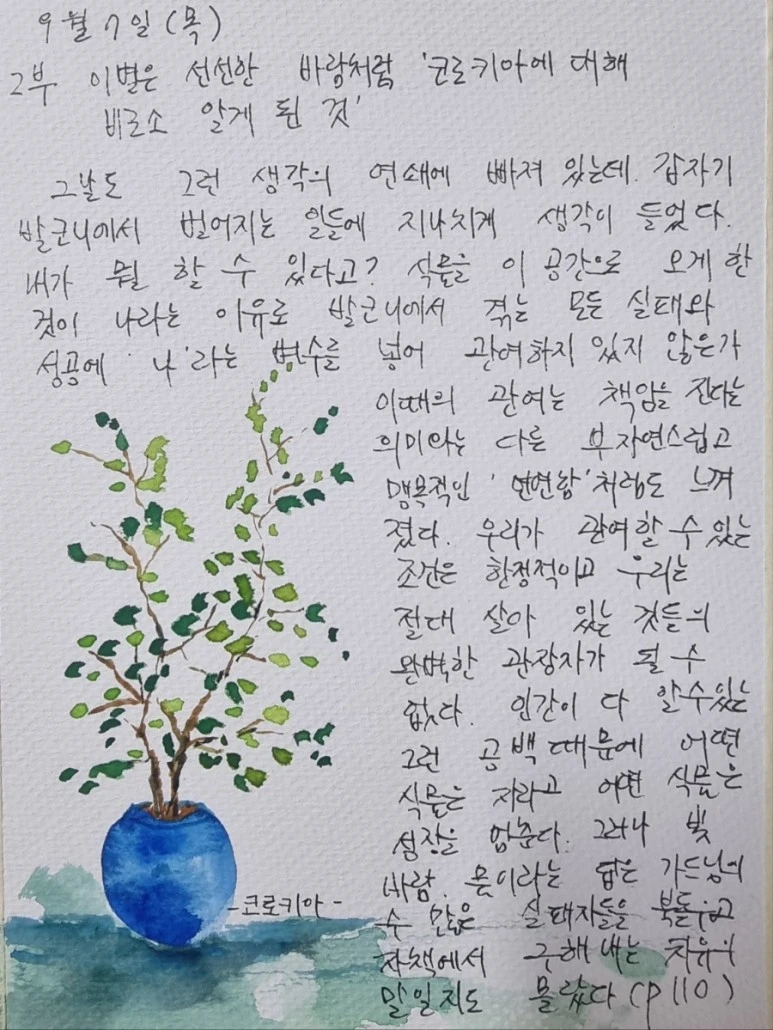 9월 7일 (목)
2부 이별은 선선한 바람처럼 '코로키아에 대해
비로소 알게 된 것'
그날도 그런 생각의 연쇄에 빠져 있는데. 갑자기
발코니에서 벌어지는 일들에 지나치게 생각이 들었다.
내가 뭘 할 수 있다고? 식물을 이 공간으로 오게 한
것이 나라는 이유로 발코니에서 겪는 모든 실태와
성공에 '나'라는 변수를 넣어 관여하지 있지 않은가
이때의 관여는 책임을 진다는
의미와는 다른 부자연스럽고
맹목적인 '연연함'처럼도 느껴
졌다. 우리가 관여할 수 있는
조건은 한정적이고 우리는
절대 살아 있는 것들의
완벽한 관장자가 될 수
없다. 인간이 다 알 수 있는
그런 공백 때문에 어떤
식물은 자라고 어떤 식물은
성장을 멈춘다. 그러나 빛
바람. 물이라는 답은 가드닝의
수 많은 실패자들을 북돋우고
자책에서 구해 내는 치유의
말일지도 몰랐다 (p110)
-코로키아-